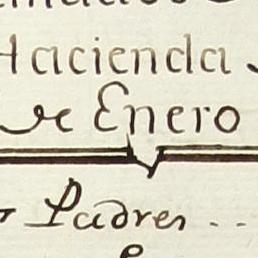 Hacienda
de Enero
Padres